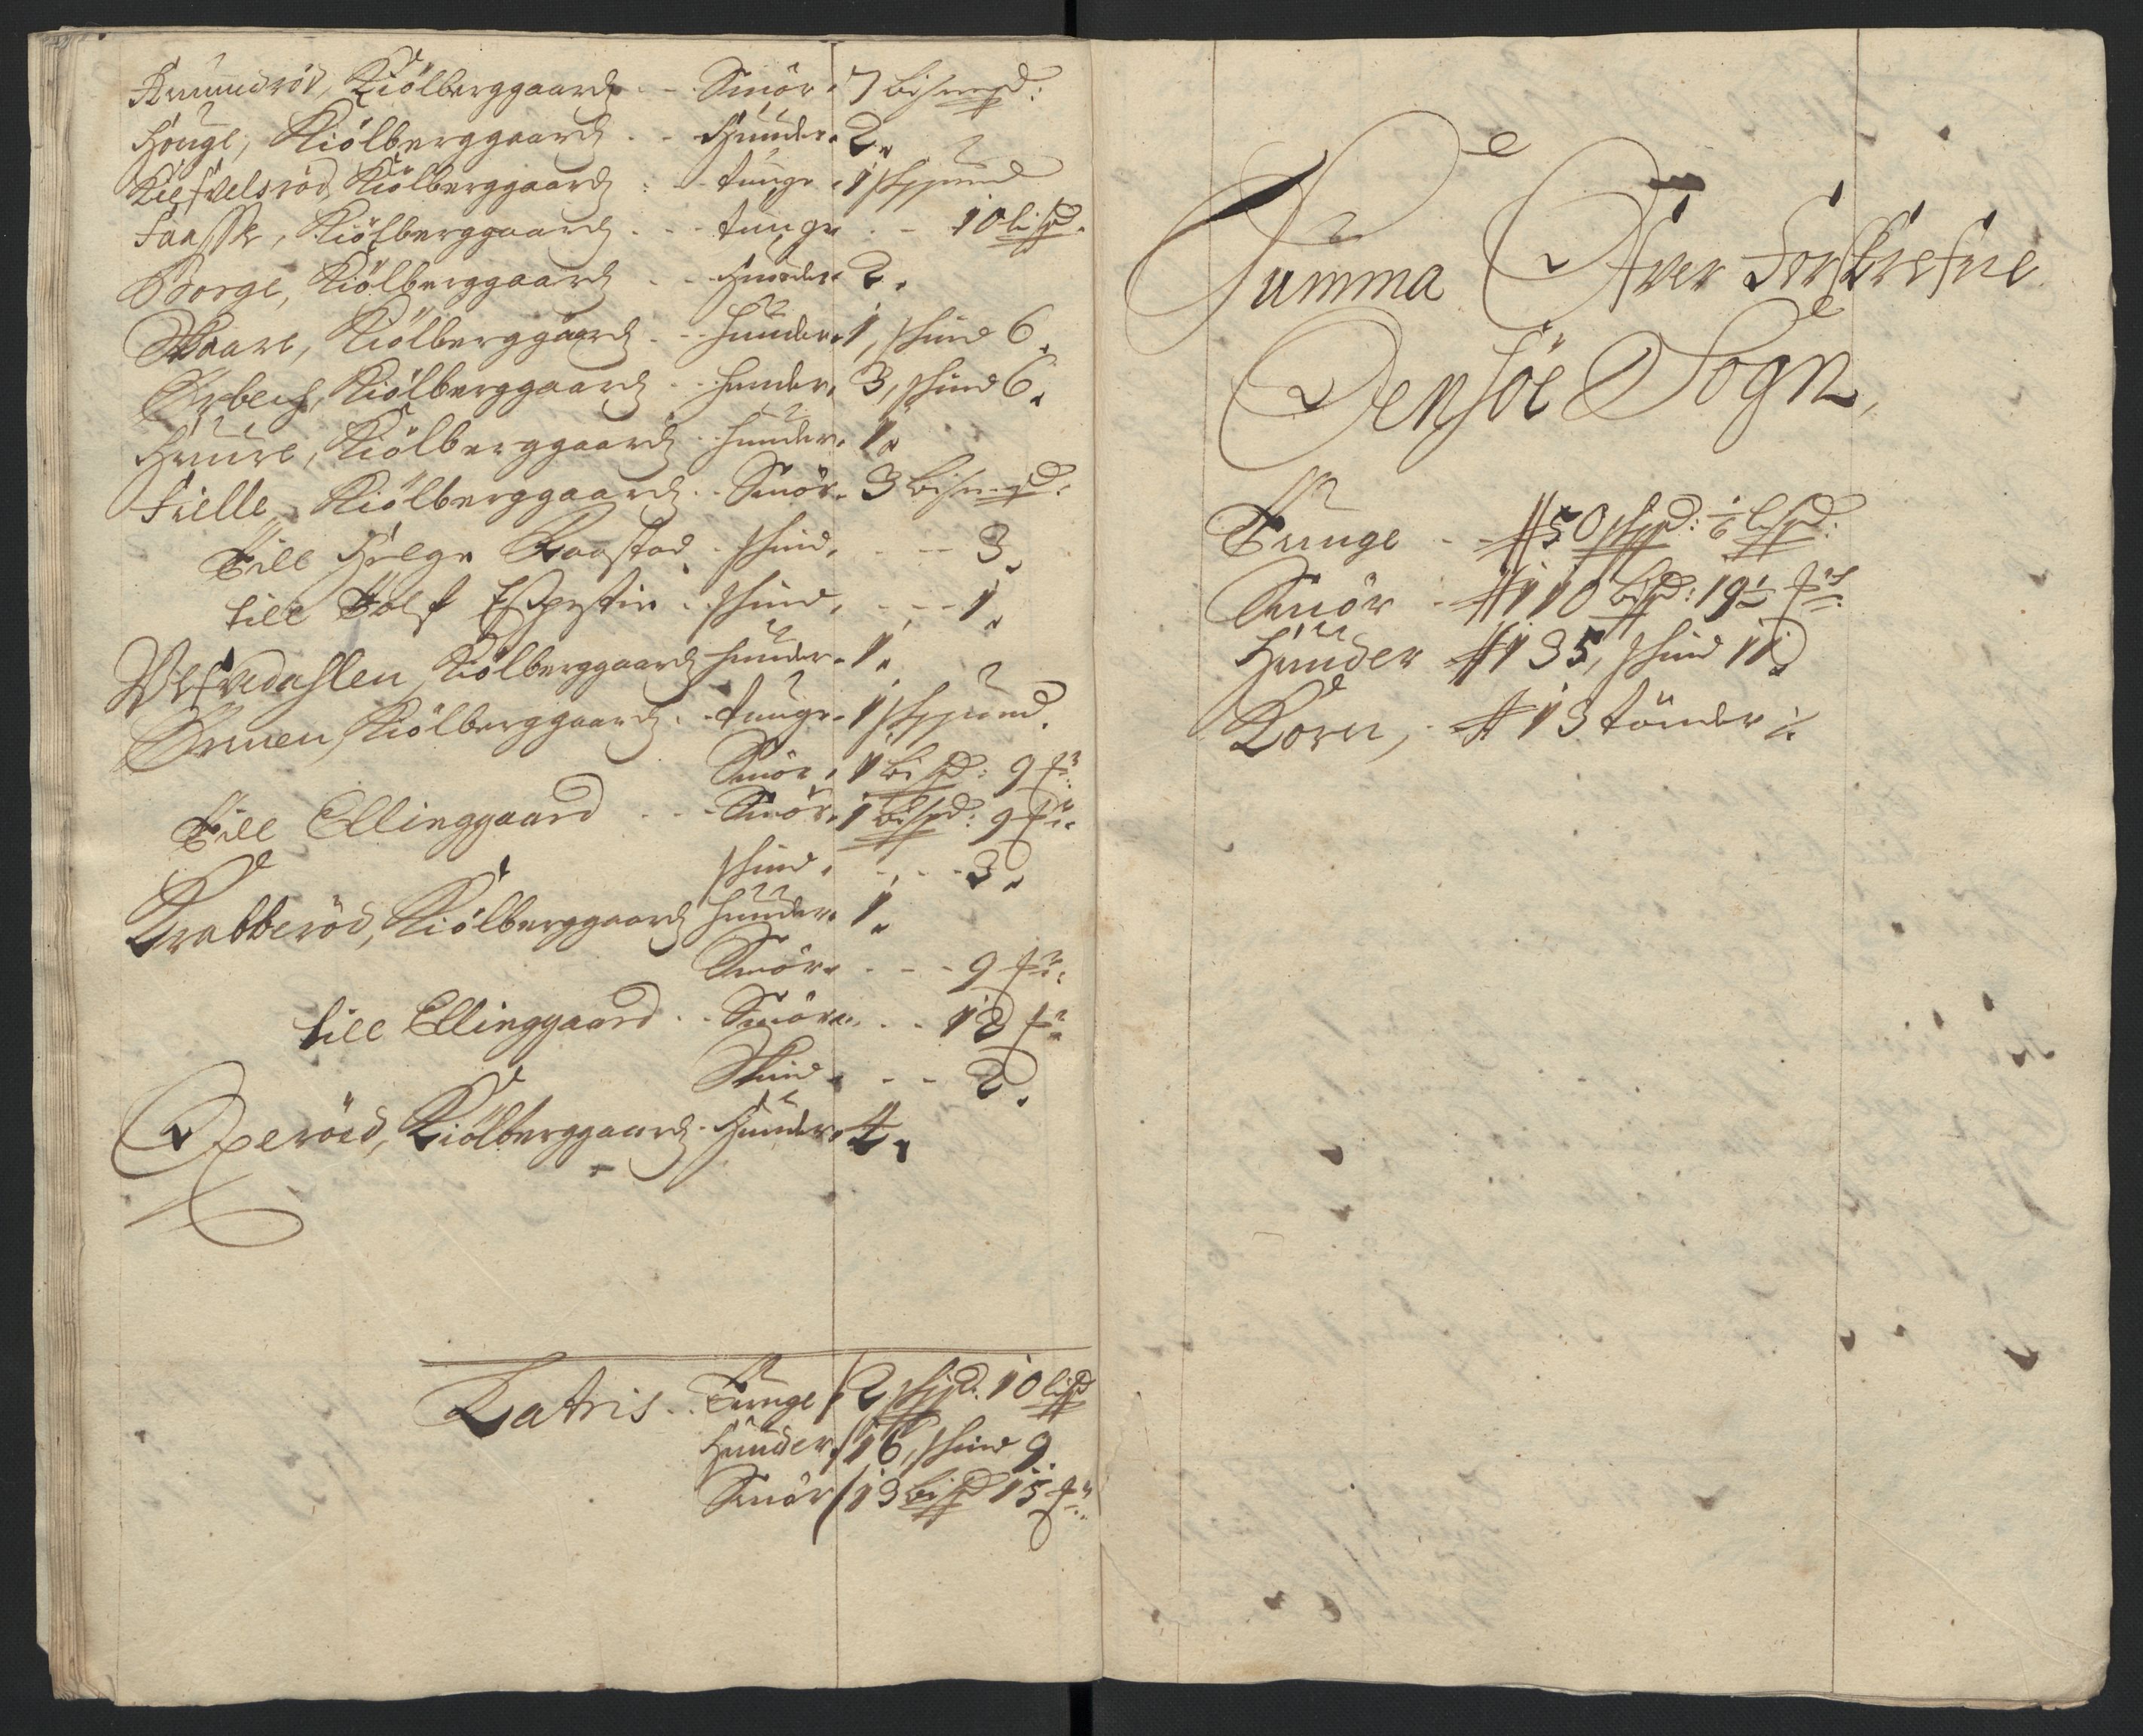 Amundröd, Kiölberggaard - Smör. 7 bismpd:
Houge, Kiölberggaard - Huuder. 2.
Kiefvelsröd, Kiölberggaard - tunge. 1 skippund
Faaske, Kiölberggaard - tunge - 10 lispd.
Borge, Kiölberggaard - Huuder. 2.
Skaare, Kiölberggaard - huuder. 1, skind 6.
Ørbech, Kiölberggaard - huuder. 3, skind 6.
Huure, Kiölberggaard - huuder. 1.
Fielle, Kiölberggaard - Smör. 3 bismpd:
Till Helge Raastad - skind. - 3.
till Rolf - skind. - 1.
Ulfvedahlen, Kiölberggaard huuder. 1.
Ørmen, Kiölberggaard - tunge. 1 skippund.
Smör. 1 bispd: 9 £
Till Ellinggaard - Smör. 1 bispd: 9 £
skind. - 3.
Krabberöd, Kiölberggaard huuder. 1.
Smör. - 9 £
till Ellinggaard - Smör. - 12 £
Skind. - 2.
Oxeröed, Kiölberggaard - Huuder. 4.
Latris - Tunge / 2 skpd: 10 lispd
Huuder. / 16, skind 9.
Smör / 13 bispd 15 £
Summa Ofver Forskrefne
Oensöe Sogn,
Tunge - 50 skpd: 6 lispd:
Smör - 110 bispd: 19½ £
Huuder 135, skind 11.
Korn, - 13 tönder